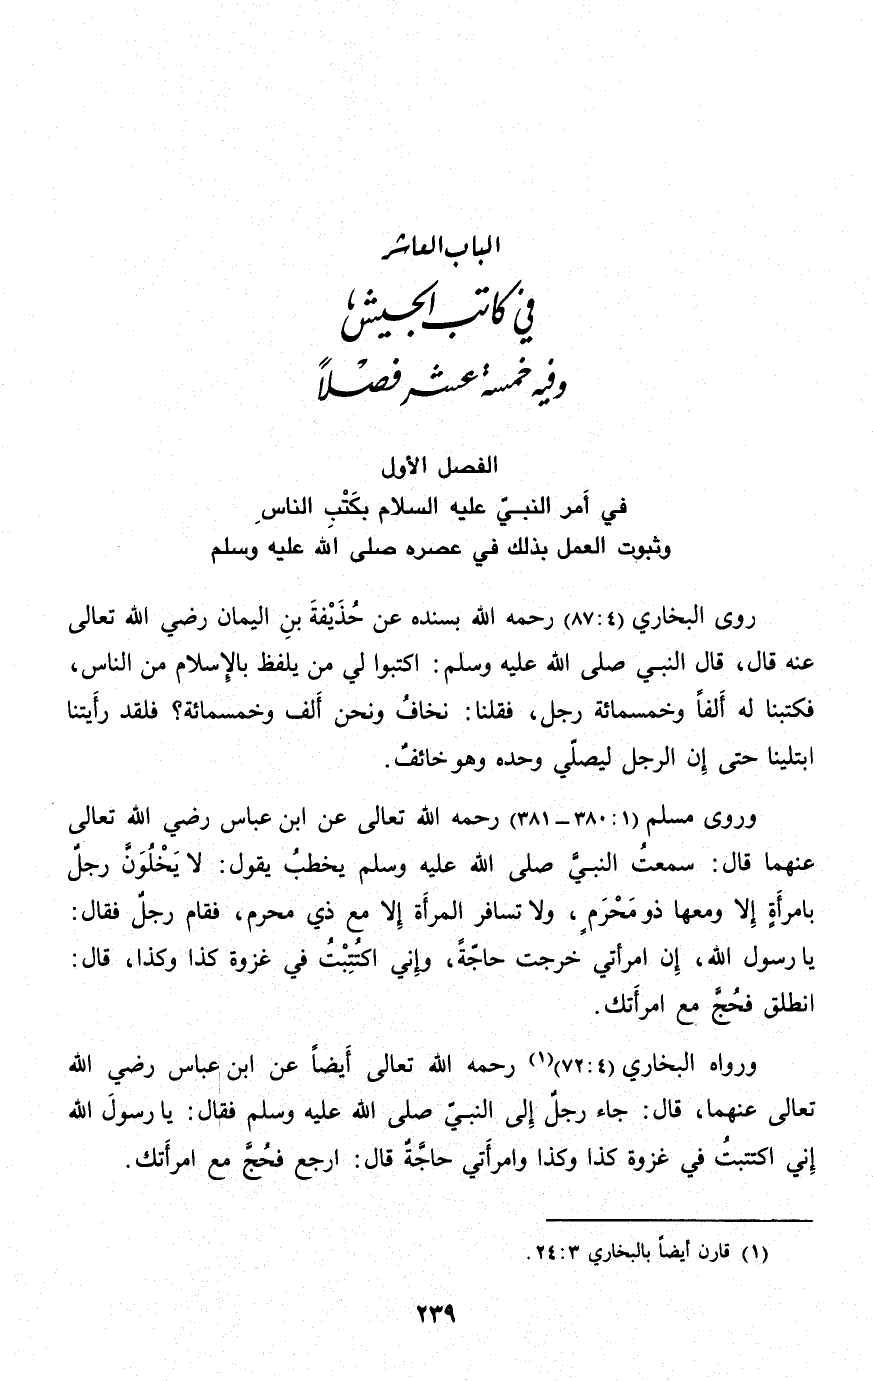 الباب العاشر
في كاتب الجيش
وفيه خمسة عشر فصلاً
الفصل الأول
في أَمر النبيّ عليه السلام بِكَتْبِ الناس
وثبوت العمل بذلك في عصره صلى الله عليه وسلم
روى البخاري (٤:٨٧) رحمه الله بسنده عن حُذَيْفةَ بنِ اليمان رضي الله تعالى
عنه قال، قال النبي صلى الله عليه وسلم: اكتبوا لي من يلفظ بالإِسلام من الناس،
فكتبنا له أَلفاً وخمسمائة رجل، فقلنا: نخافُ ونحن أَلف وخمسمائة؟ فلقد رأَيتنا
ابتلينا حتى إِن الرجل ليصلّي وحده وهو خائفٌ.
وروى مسلم (١: ٣٨٠ - ٣٨١) رحمه الله تعالى عن ابن عباس رضي الله تعالى
عنهما قال: سمعتُ النبيَّ صلى الله عليه وسلم يخطبُ يقول: لا يَخْلُوَنَّ رجلٌ
بامرأَةٍ إِلا ومعها ذو مَحْرَمٍ، ولا تسافر المرأَة إِلا مع ذي محرم، فقام رجلٌ فقال:
يا رسول الله، إِن امرأتي خرجت حاجّةً، وإِني اكتُتِبْتُ في غزوة كذا وكذا، قال:
انطلق فحُجَّ مع امرأَتك.
ورواه البخاري (٤: ٧٢)(١) رحمه الله تعالى أَيضاً عن ابن عباس رضي الله
تعالى عنهما، قال: جاء رجلٌ إِلى النبيّ صلى الله عليه وسلم فقال: يا رسولَ الله
إِني اكتتبتُ في غزوة كذا وكذا وامرأَتي حاجَّةٌ قال: ارجع فحُجَّ مع امرأَتك.
(١) قارن أيضاً بالبخاري ٣: ٢٤.
٢٣٩